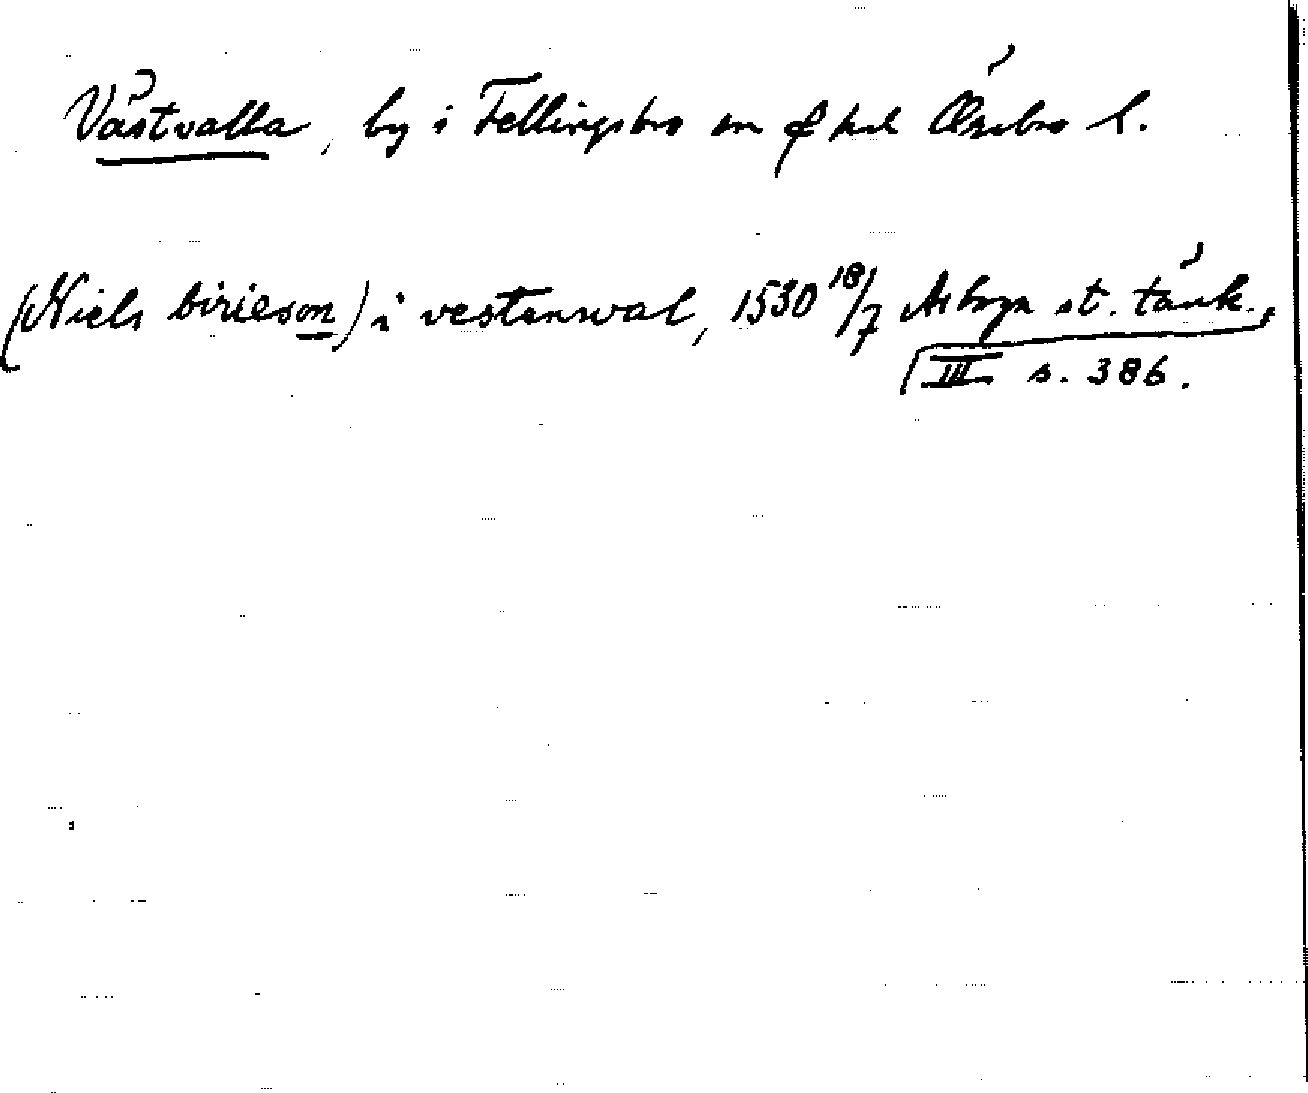 Västvalla, by i Fellingsbro sn o hd Örebro l.
(Niels birieson) i vestanwal, 1530 18/7 Arboga st. tänk.,
III s. 386.